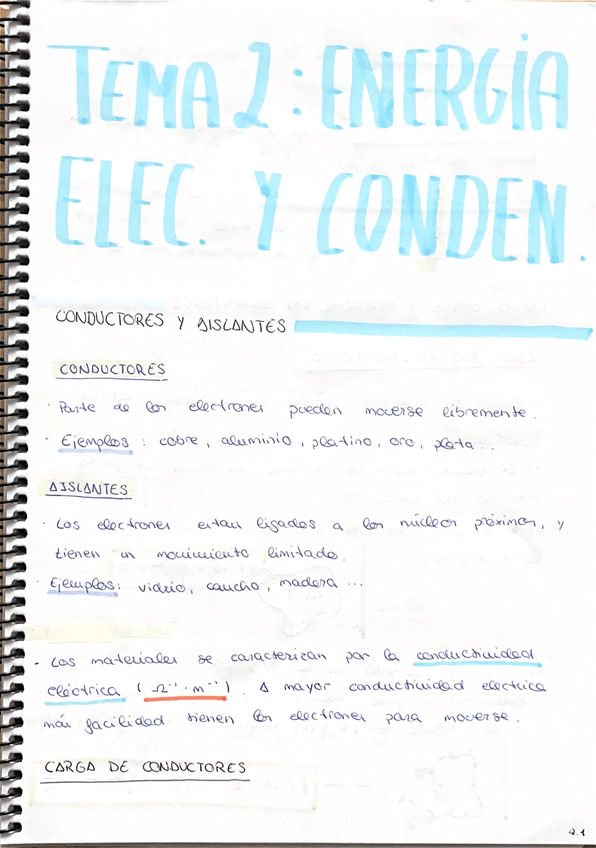 TEMA 2: ENERGÍA
ELEC. Y CONDEN.
CONDUCTORES Y AISLANTES
CONDUCTORES
· Parte de los electrones pueden moverse libremente.
· Ejemplos: cobre, aluminio, platino, oro, plata...
AISLANTES
· Los electrones estan ligados a los núcleos próximos, y
tienen un movimiento limitado.
· Ejemplos: vidrio, caucho, madera ...
- Los materiales se caracterizan por la conductividad
eléctrica (Ω⁻¹·m⁻¹). A mayor conductividad electrica
más facilidad tienen los electrones para moverse.
CARGA DE CONDUCTORES
2.1